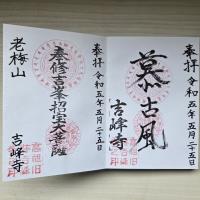 奉拝 令和五年五月二十五日
慕古風
吉峰寺
奉拝 令和五年五月二十五日
奉修吉峯招宝大菩薩
老梅山
吉峰寺